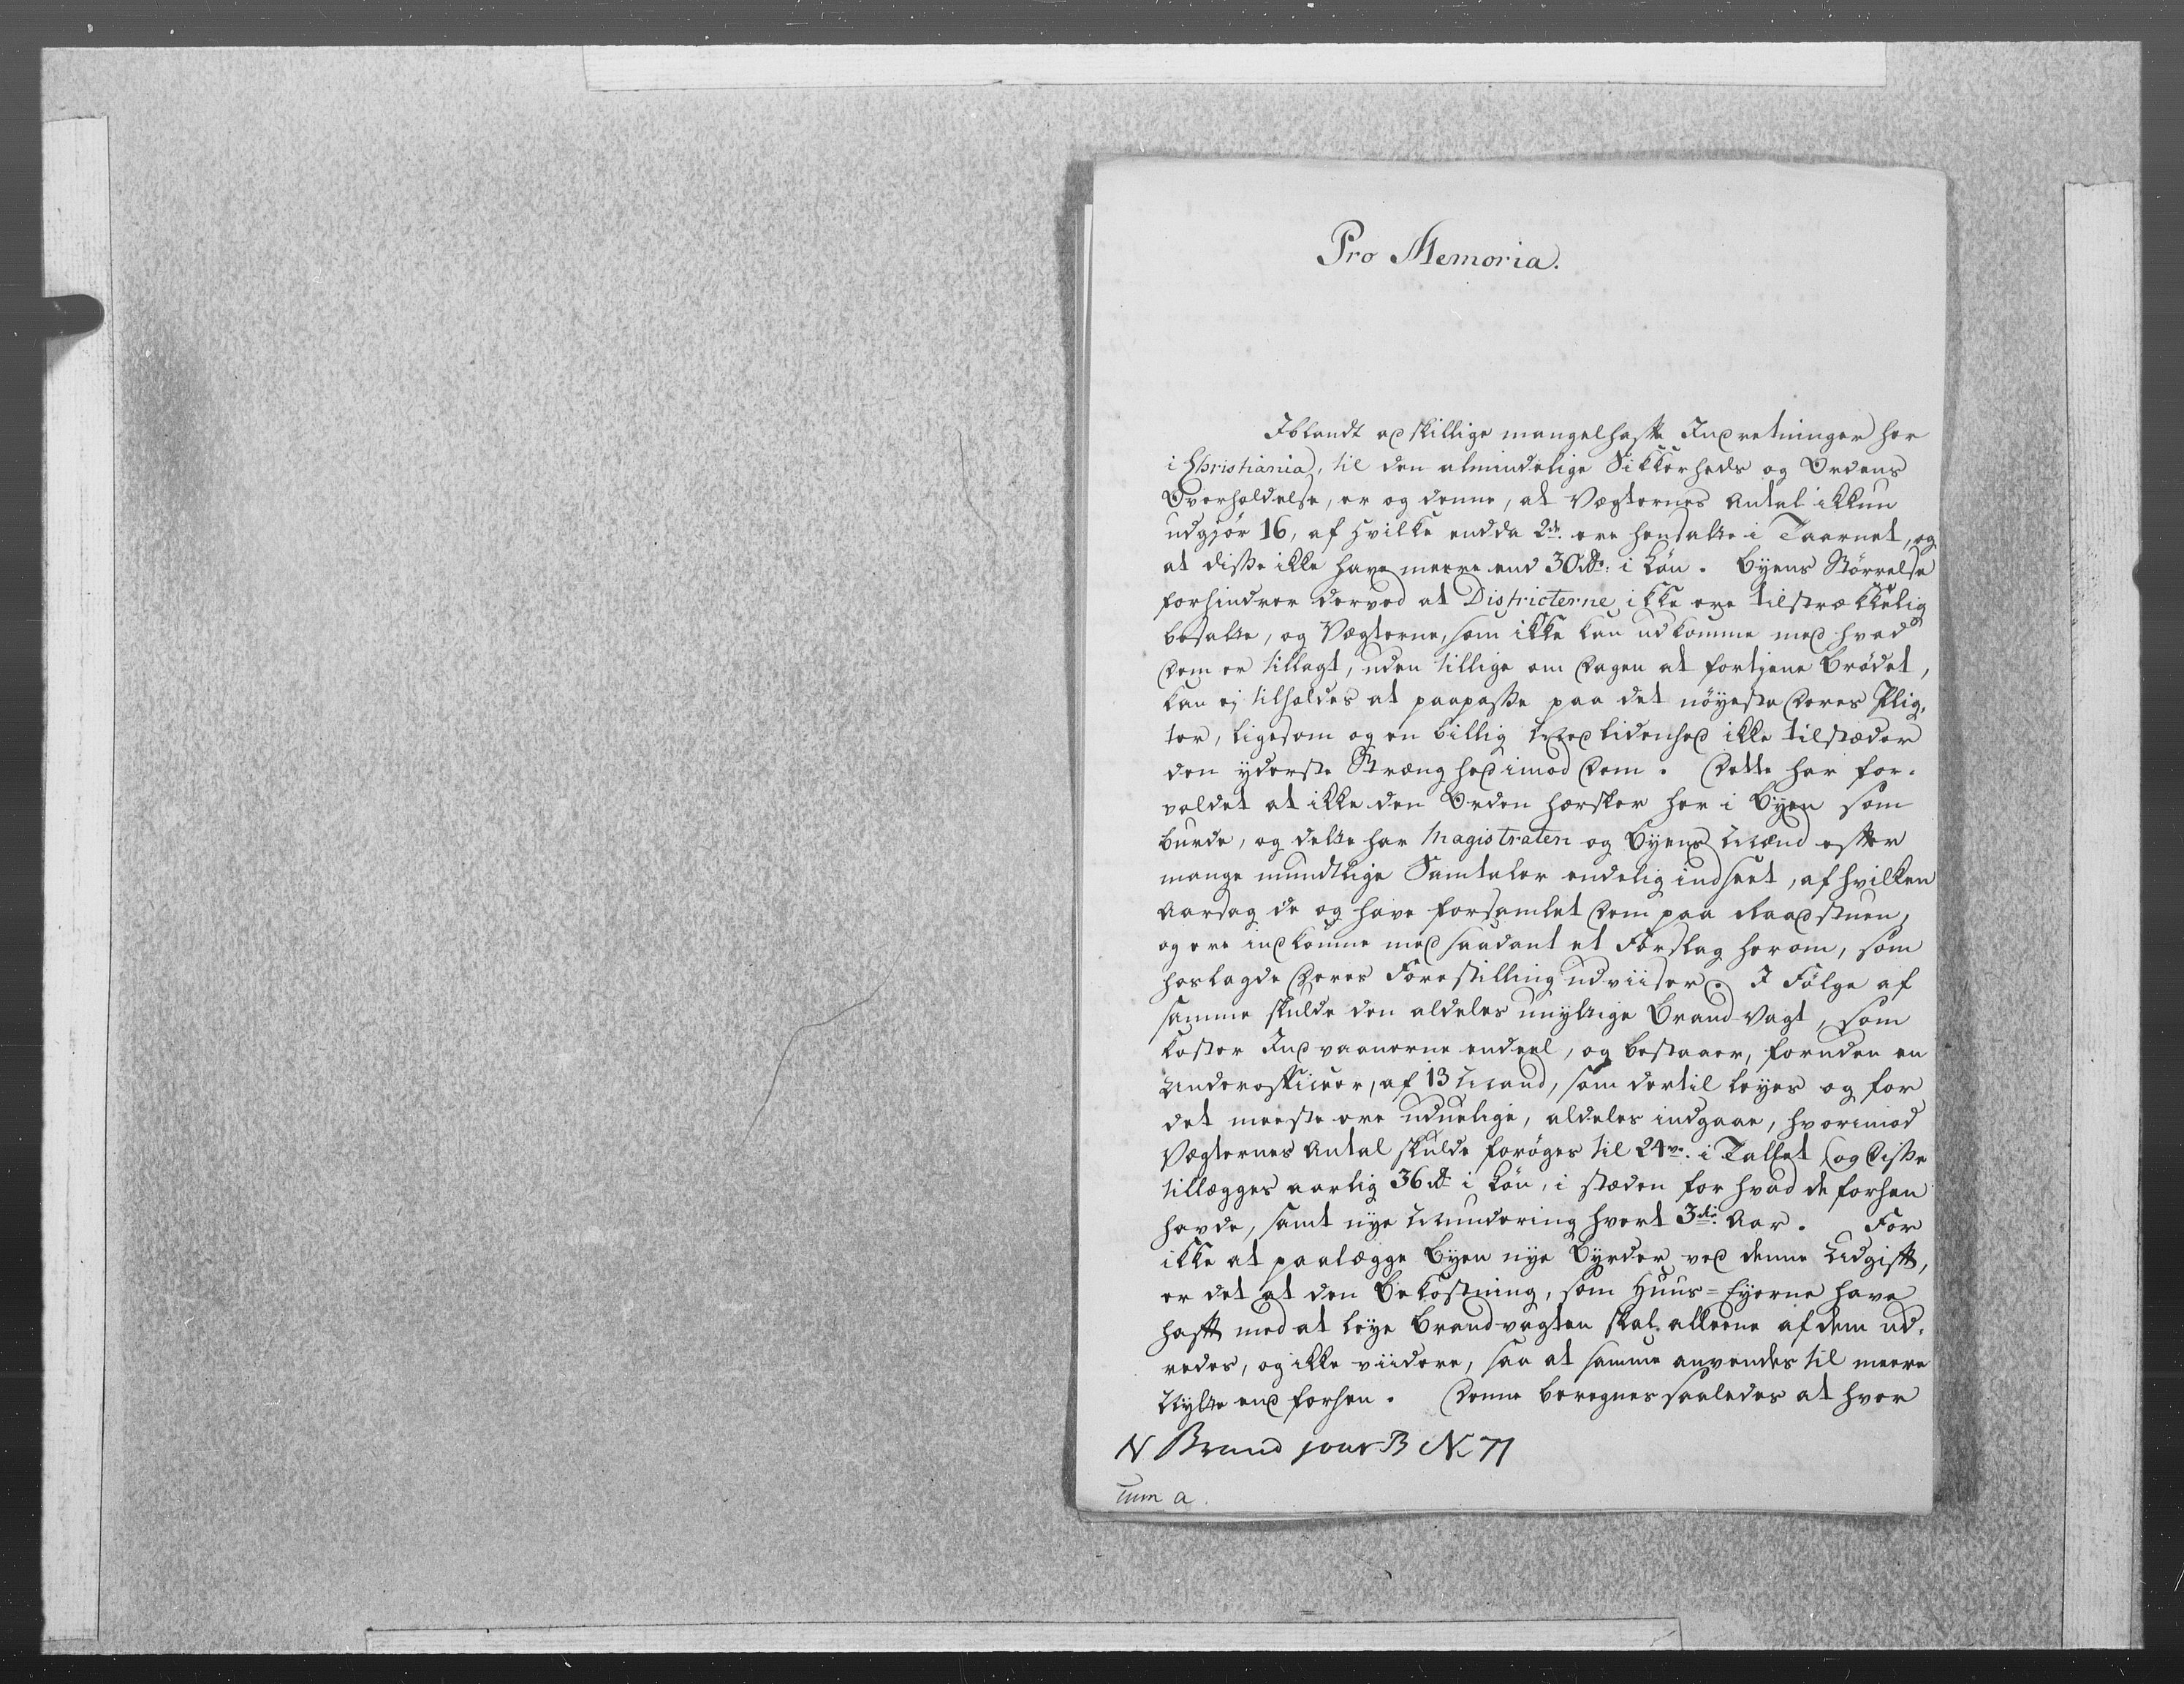 Pro Memoria.
Iblandt adskillige mangelhafte Indretninger her
i Christiania, til den almindelige Sikkerheds og Ordens
Overholdelse, er og denne, at Vægternes Antal ikkun
udgjør 16, af hvilke endda 2de ere hensatte i Taarnet, og
at disse ikke have meere end 30 rdr: i Løn. Byens Størrelse
forhindrer derved at Districterne ikke ere tilstrækkelig
besatte, og Vægterne, som ikke kan udkomme med hvad
Dem er tillagt, uden tillige om Dagen at fortjene Brødet,
kan ej tilholdes at paapasse paa det nöyeste Deres Plig,
ter, ligesom og en billig Medlidenhed ikke tilstæder
den yderste Strænghed imod Dem. Dette har for-
voldet at ikke den Orden hersker her i Byen som
burde, og dette har Magistraten og Byens Mænd efter
mange mundtlige Samtaler endelig indseet, af hvilken
Aarsag de og have forsamlet Dem paa Raadstuen,
og ere indkomne med saadant et Forslag herom, som
hoslagde Deres Forestilling udviiser. I Følge af
samme skulde den aldeles unyttige Brand-Vagt, som
koster Indvaanerne endeel, og bestaaer, foruden en
Underofficeer, af 13 Mand, som dertil leyes og for
det meeste ere uduelige, aldeles indgaae, hvorimod
Vægternes Antal skulde forøges til 24ve. i Tallet og Disse
tillægges aarlig 36 rd i Løn, i stæden for hvad de forhen
havde, samt nye Mundering hvert 3die Aar. For
ikke at paalægge Byen nye Byrder ved denne Udgift,
er det at den Bekostning, som Huus-Eyerne have
haft med at leye Brandvagten skal alleene af dem ud-
redes, og ikke viidere, saa at samme anvendes til meere
Nytte end forhen. Denne beregnes saaledes at hver
N Brand jour B No 71
cum a.